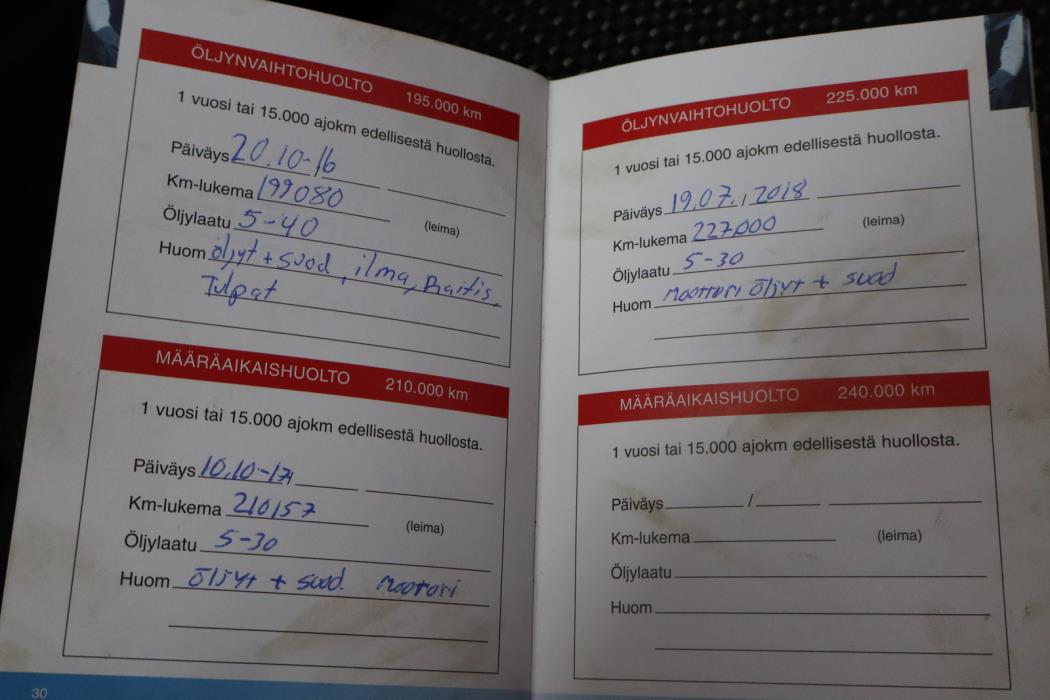 ÖLJYNVAIHTOHUOLTO 195.000 km
1 vuosi tai 15.000 ajokm edellisestä huollosta.
Päiväys 20.10-16
Km-lukema 199080
Öljylaatu 5-40 (leima)
Huom öljyt + suod, ilma, Raitis,
Tulpat
MÄÄRÄAIKAISHUOLTO 210.000 km
1 vuosi tai 15.000 ajokm edellisestä huollosta.
Päiväys 10.10-17
Km-lukema 210157
(leima)
Öljylaatu 5-30
Huom öljyt + suod. mootori
30
ÖLJYNVAIHTOHUOLTO 225.000 km
1 vuosi tai 15.000 ajokm edellisestä huollosta.
Päiväys 19.07. / 2018
Km-lukema 227.000 (leima)
Öljylaatu 5-30
Huom moottori öljyt + suod
MÄÄRÄAIKAISHUOLTO 240.000 km
1 vuosi tai 15.000 ajokm edellisestä huollosta.
Päiväys /
Km-lukema (leima)
Öljylaatu
Huom